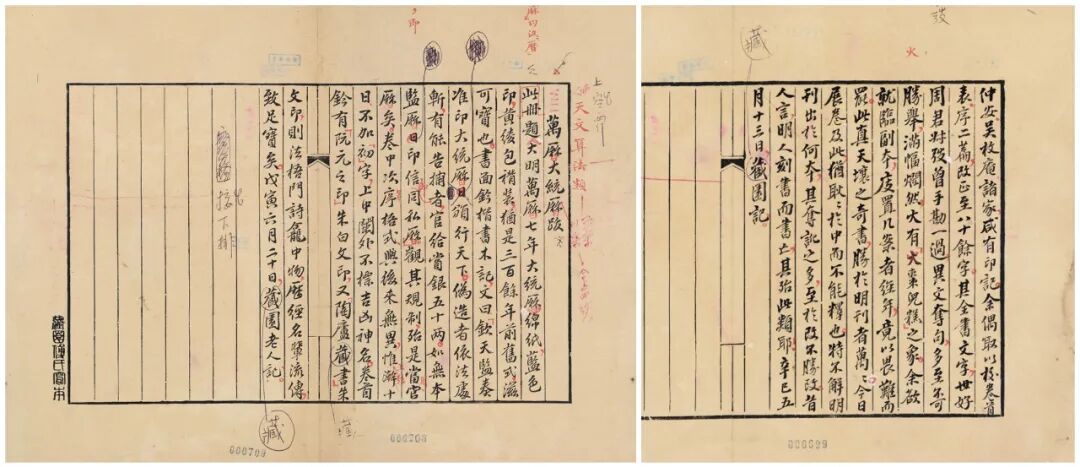 天文算法類
萬厤大統厤跋
此册題大明萬厤七年大統厤綿紙藍色
印黄綾包褙裝猶是三百餘年前舊式滋
可寶也書面鈐楷書木記文曰欽天監奏
准印大統厤日頒行天下偽造者依法處
斬有能告捕者官給賞銀五十兩如無本
監厤日印信同私厤觀其規制殆是當官
厤矣卷中次序格式與後來無異惟十
日不如「初」字上中闌外不標吉凶神名卷首
鈐有「阮元之印」朱白文印又「陶廬藏書」朱
文印則法梧門詩龕中物歷經名輩流傳
致足寶矣戊寅六月二十日藏園老人記
接下排
藏
藏園傅氏寫本
000709
藏
火
仲安吴枚庵諸家咸有印記余偶取以校卷首
表序二篇改正至八十餘字其全書文字世好
周君叔弢曾手勘一過異文奪句多至不可
勝舉滿幅爛然火有火棗兒糕之象余欲
就臨副本庋置几案者經年竟以畏難而
罷此真天壤之奇書勝於明刊者萬〻今日
展卷及此猶耿〻於中而不能釋也特不解明
刊出於何本其奪訛之多至於改不勝改昔
人言明人刻書而書亡其殆此類耶辛巳五
月十三日藏園記
000699